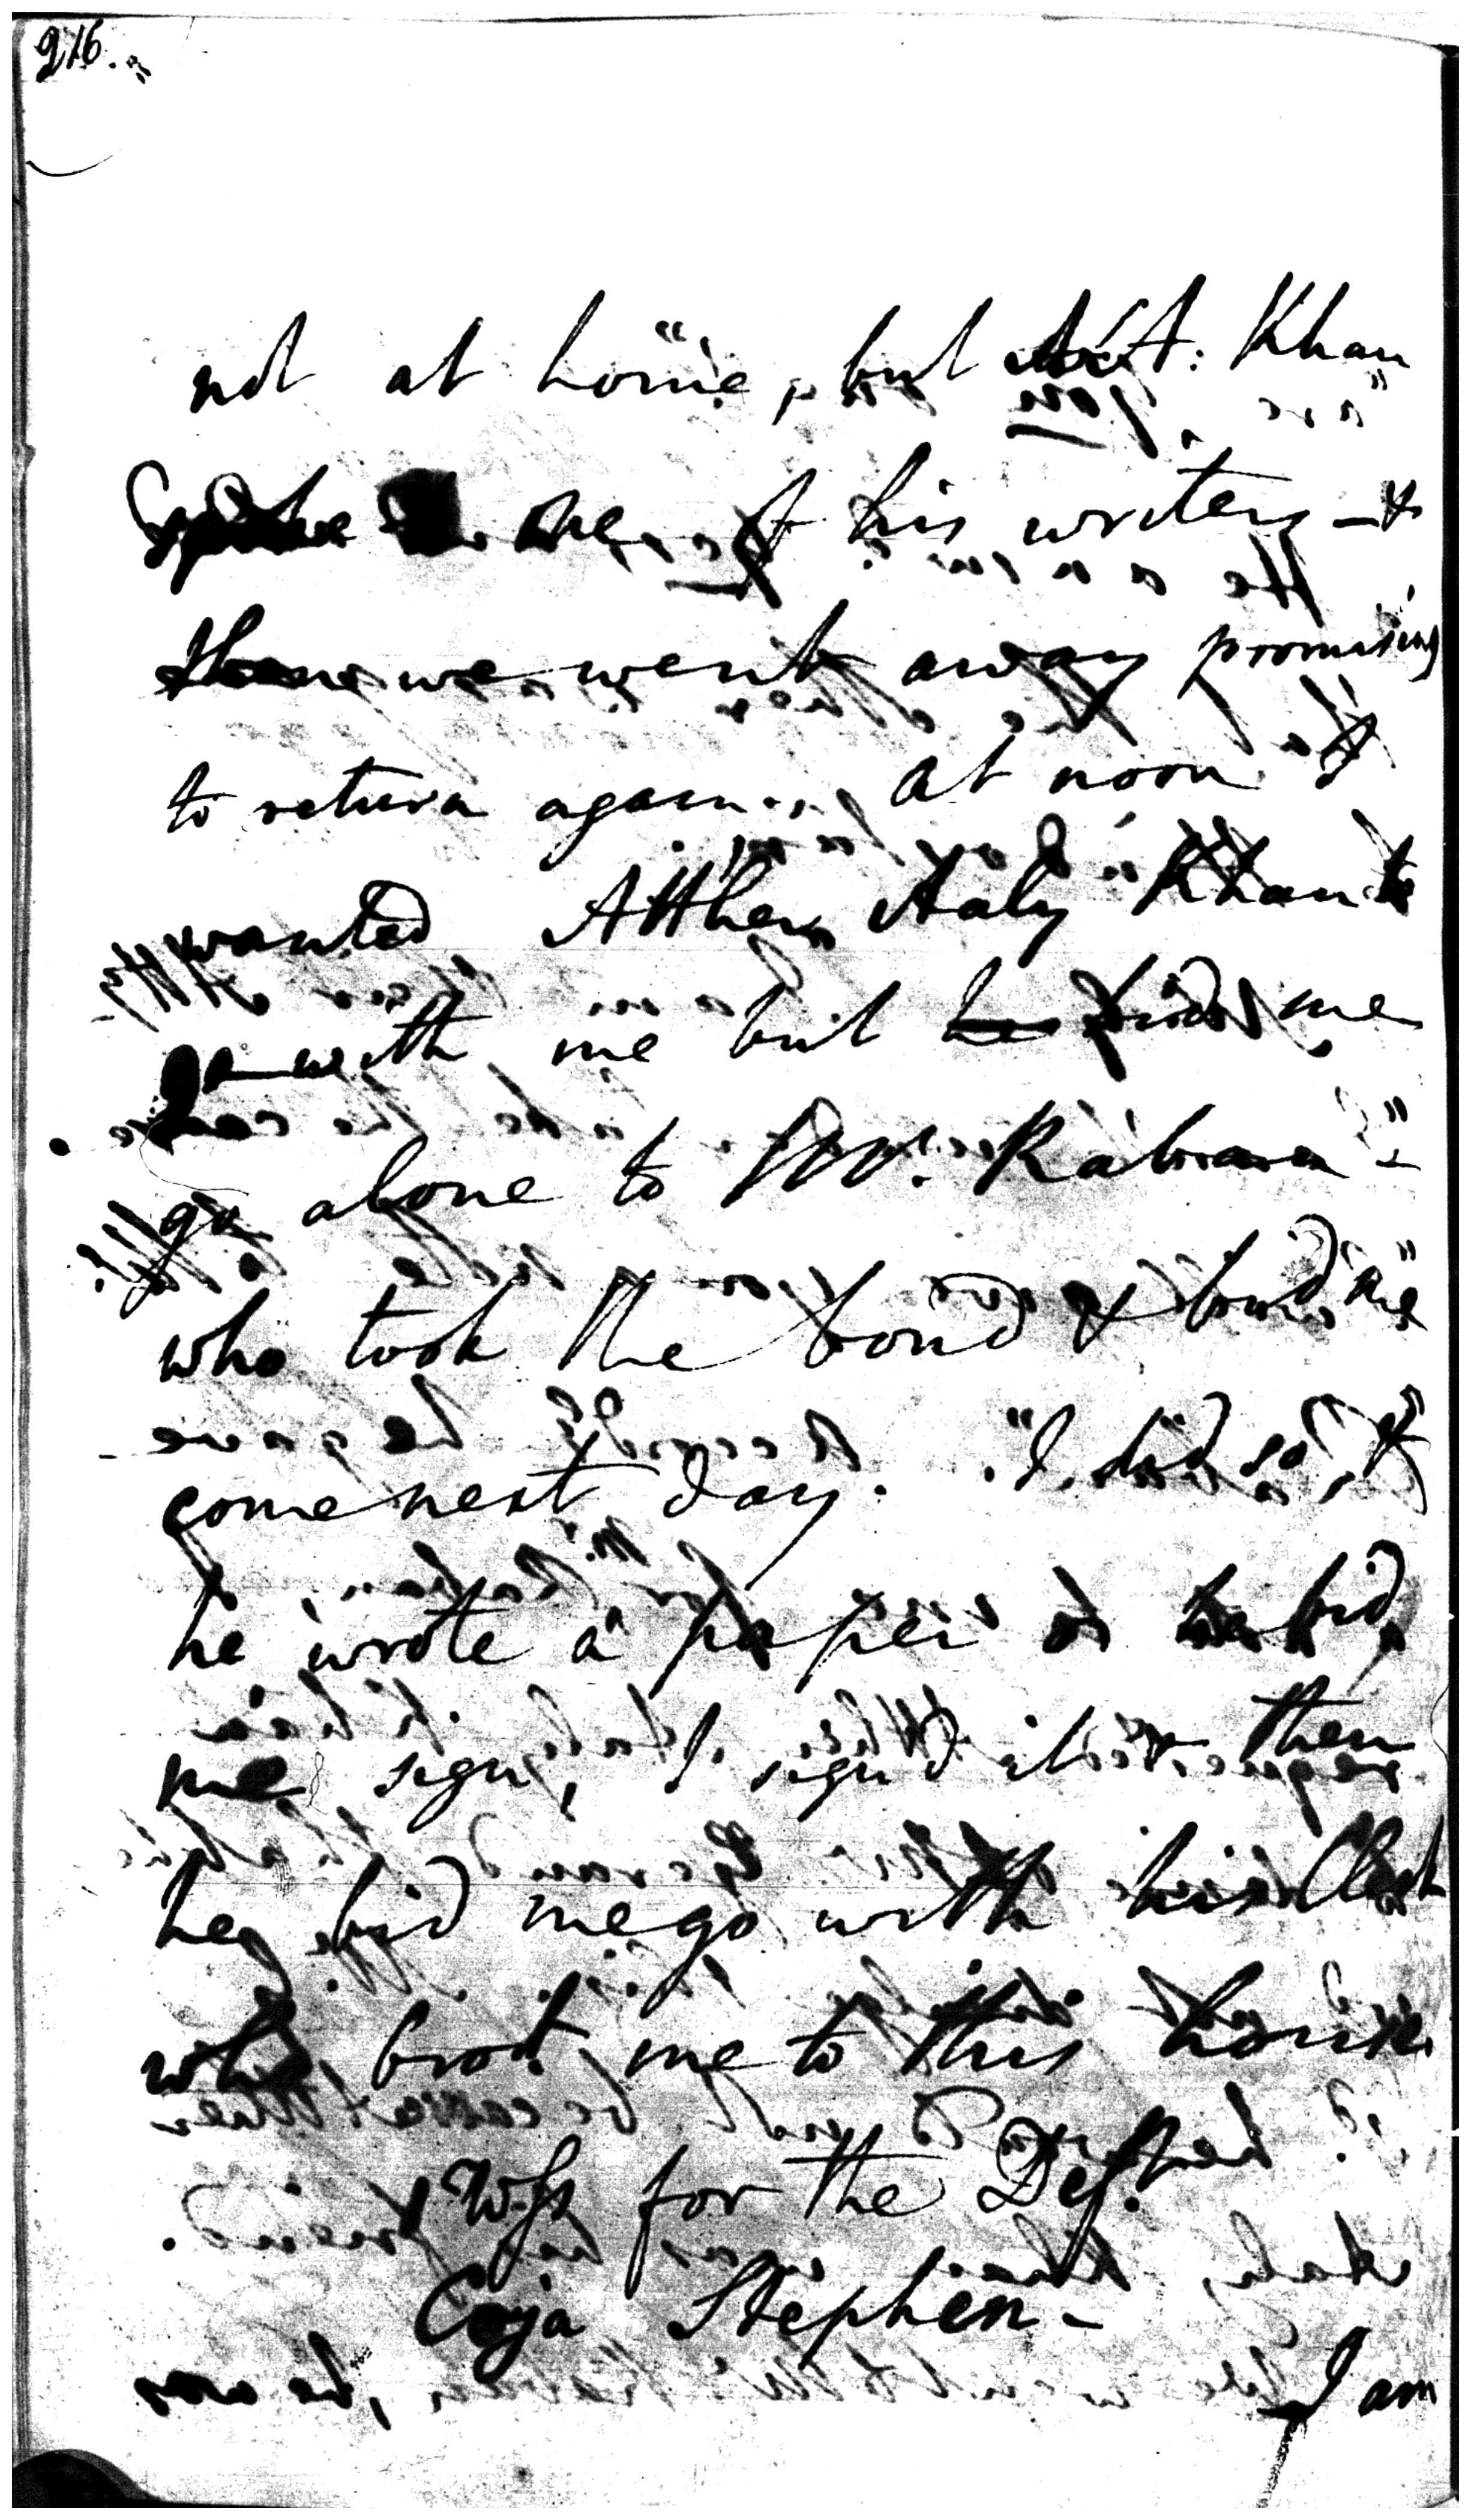 216.
not at home, but A: A: Khan
spoke to one of his writers - &
then we went away promising
to return again. at noon I
wanted Atther Aaly Khan to
go with me but he bid me
go alone to Mr. Raban -
who took the bond & bid me
come next day. I did so, &
he wrote a paper & bid
me sign, I sign'd it & then
he bid me go with his Clerk
who brot. me to this house
Wss for the Deft.
Coja Stephen -
I am